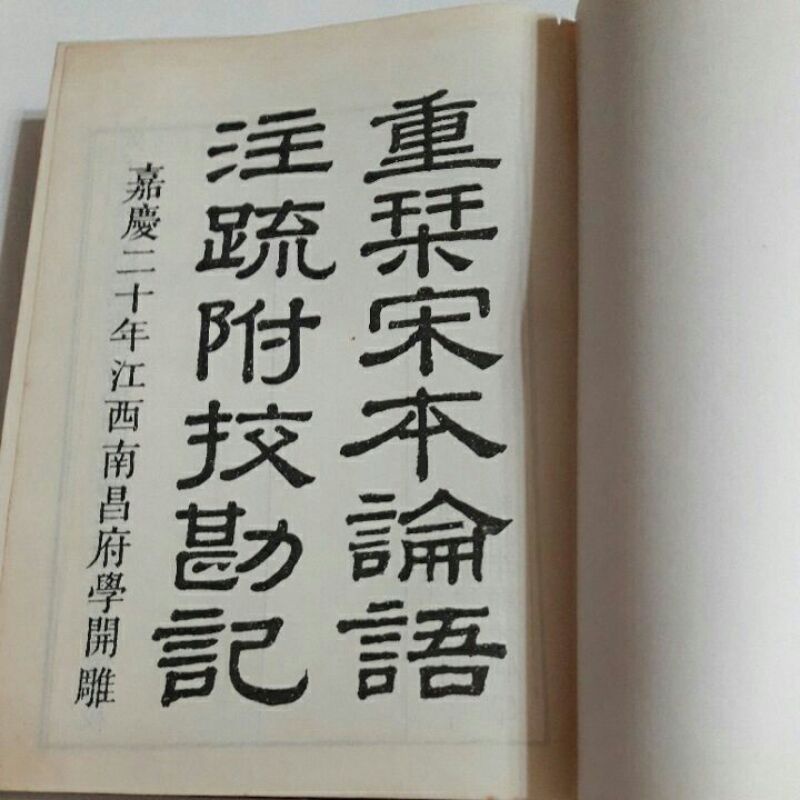 重栞宋本論語
注疏附挍勘記
嘉慶二十年江西南昌府學開雕